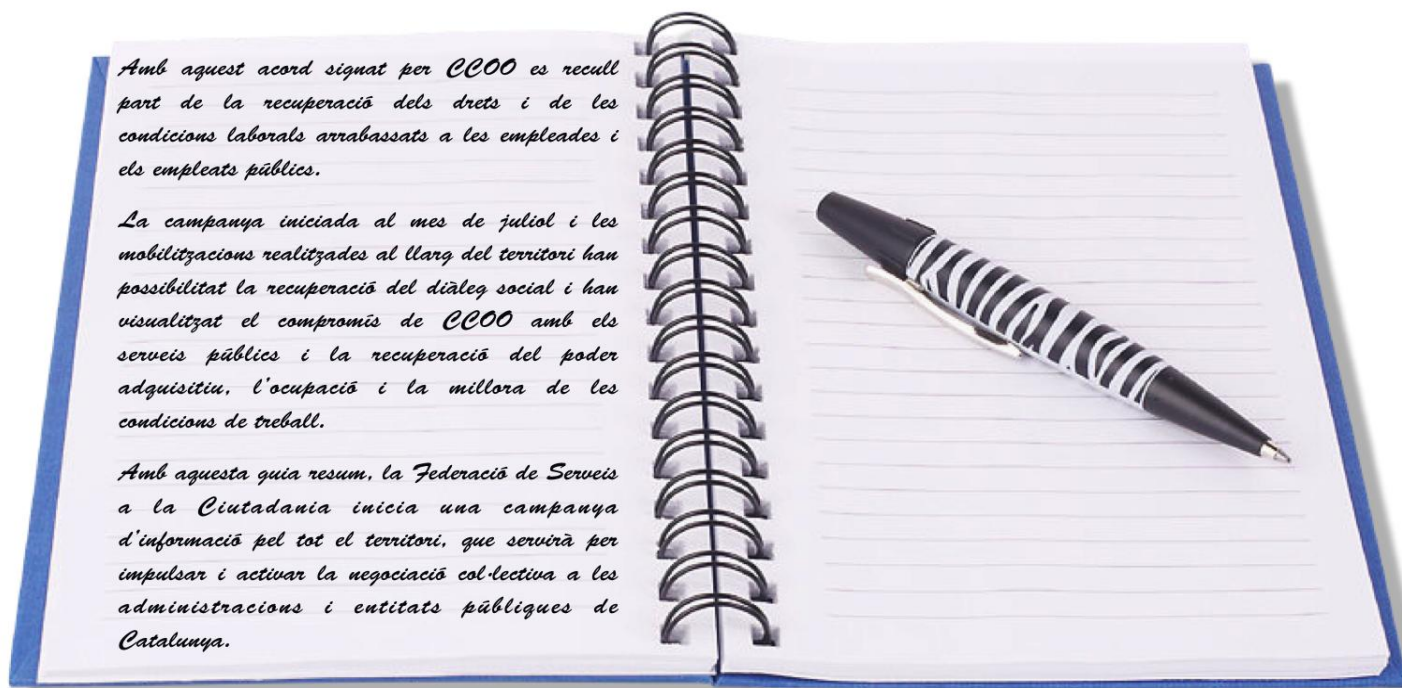 Amb aquest acord signat per CCOO es recull
part de la recuperació dels drets i de les
condicions laborals arrabassats a les empleades i
els empleats públics.
La campanya iniciada al mes de juliol i les
mobilitzacions realitzades al llarg del territori han
possibilitat la recuperació del diàleg social i han
visualitzat el compromís de CCOO amb els
serveis públics i la recuperació del poder
adquisitiu, l'ocupació i la millora de les
condicions de treball.
Amb aquesta guia resum, la Federació de Serveis
a la Ciutadania inicia una campanya
d'informació pel tot el territori, que servirà per
impulsar i activar la negociació col·lectiva a les
administracions i entitats públiques de
Catalunya.